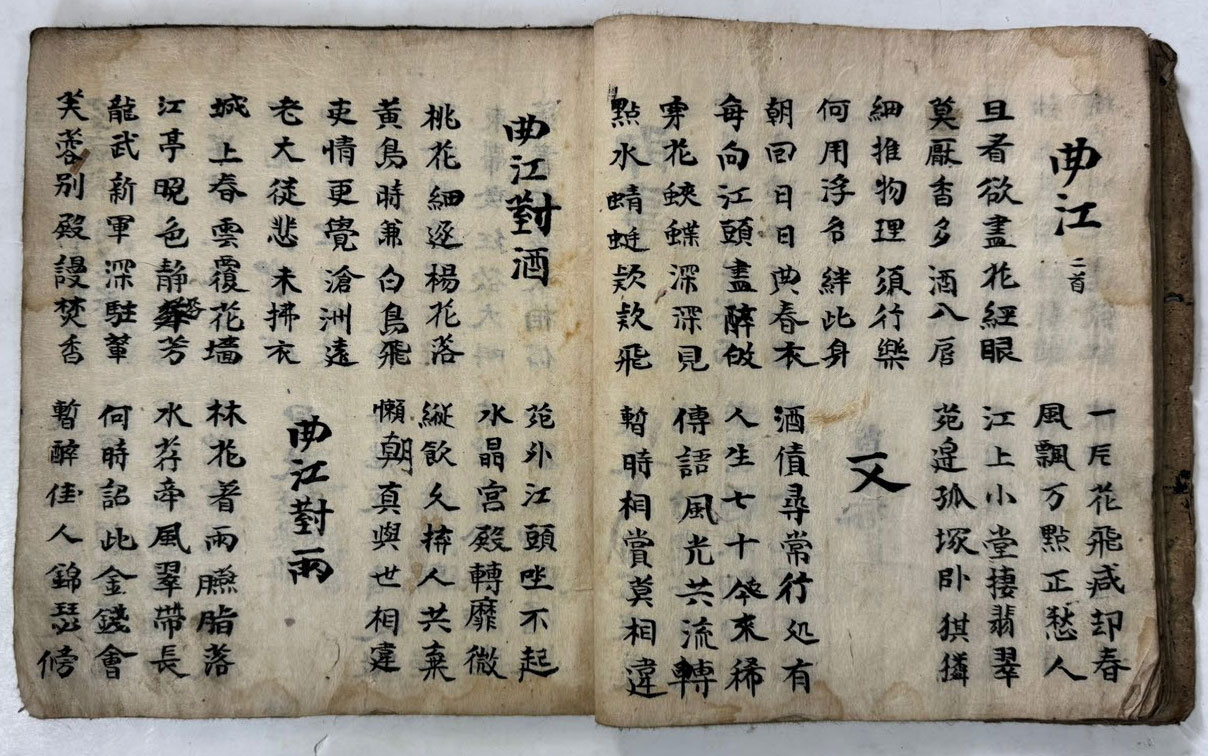 曲江 二首
一片花飛减却春
風飄万點正愁人
且看欲盡花經眼
江上小堂捿翡翠
莫厭香多酒入唇
苑邉孤塚卧猉獜
細推物理須行樂
何用浮名絆此身
又
朝回日日典春衣
酒債尋常行処有
每向江頭盡醉皈
人生七十夲來稀
穿花蛺蝶深深見
傳語風光共流轉
點水蜻蜓欵欵飛
暫時相賞莫相違
曲江對酒
苑外江頭坐不起
水晶宮殿轉靡微
桃花細逐楊花落
縱飲久拚人共棄
黃鳥時兼白鳥飛
懶朝真與世相違
吏情更覺滄洲遠
老大徒悲未拂衣
曲江對雨
城上春雲覆花墻
林花著雨臙脂落
江亭晚色静芳
水荇牽風翠帶長
龍武新軍深駐輦
何時詔此金錢會
芙蓉別殿謾焚香
暫醉佳人錦瑟傍